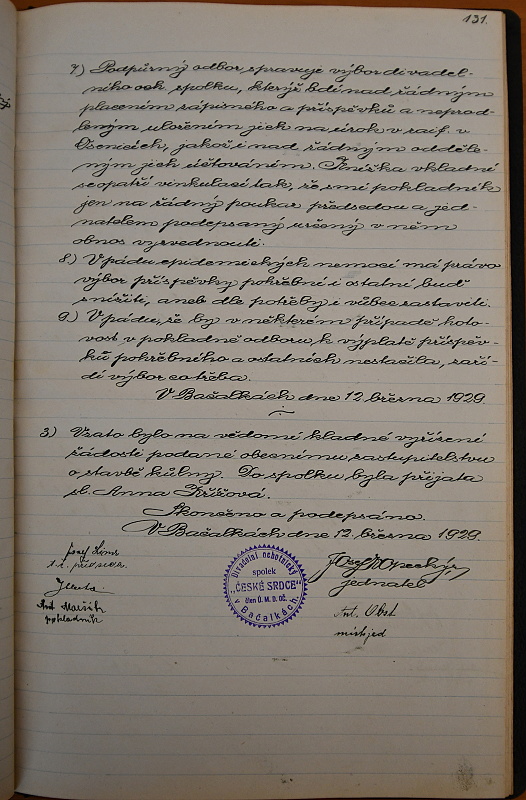 131.
7) Podpůrný odbor spravuje výbor divadel-
ního och. spolku, kterýž bdí nad řádným
placením zápisného a příspěvků a neprod-
leným uložením jich na úrok v raif. v
Osenicích, jakož i nad řádným odděle-
ným jich účtováním. Knížka vkladní
se opatří vinkulací tak, že smí pokladník
jen na řádný poukaz předsedou a jed-
natelem podepsaný určený v něm
obnos vyzvednouti.
8) V pádu epidemických nemocí má právo
výbor příspěvky pohřební i ostatní buď
snížiti, aneb dle potřeby i vůbec zastaviti.
9) V pádu, že by v některém případě hoto-
vost v pokladně odboru k výplatě příspěv-
ků pohřebního a ostatních nestačila, zaří-
dí výbor co třeba.
V Bačalkách dne 12. března 1929.
3) Vzato bylo na vědomí kladné vyřízení
žádosti podané obecnímu zastupitelstvu
o stavbě kůlny. Do spolku byla přijata
sl. Anna Křížová.
Skončeno a podepsáno.
V Bačalkách dne 12. března 1929.
Josef
t. č. předseda.
Ant.
pokladník
Divadelní ochotnický
spolek
„ČESKÉ SRDCE"
člen Ú.M.D.OČ.
v Bačalkách.
Josef Kopecký
jednatel
Ant. Obst
místjed